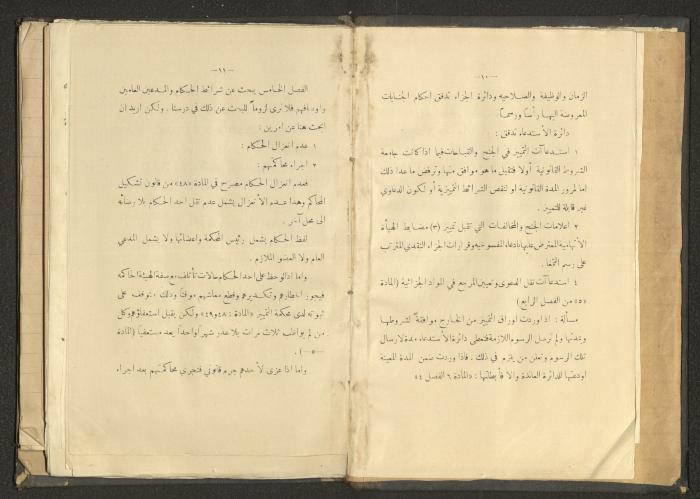 — ١٠ —
الزمان والوظيفة والصلاحيه ودائرة الجزاء تدقق احكام الجنايات
المعروضة اليها رأسًا ورسمًا
دائرة الأستدعاء تدقق :
١ استدعاآت التمييز في الجنح والقباحات فيما اذا كانت جامعة
الشروط القانونية أولا فتقبل ما هو موافق منها وترفض ما عدا ذلك
اما لمرور المدة القانونية او لنقص الشرائط التمييزية أو لكون الدعاوي
غير قابلة للتمييز .
٢ اعلامات الجنح والمخالفات التي تقبل تمييز (٣) مضابط الهيأة
الأتهامية المعترض عليها بادعاء المفسوخيه وقرارات الجزاء النقدي المترتب
على رسم التمغا .
٤ استدعاآت نقل الدعوى وتعيين المرجع في المواد الجزائية (المادة
«٥» من الفصل الرابع)
مسألة : اذا وردت اوراق التمييز من الخارج موافقة لشروطها
ومدتها ولم ترسل الرسوم اللازمة فتعطى دائرة الأستدعاء مدة لارسال
تلك الرسوم وتعلن من يلزم في ذلك . فاذا وردت ضمن المدة المعينة
اودعتها للدائرة العائدة والا فأبطلتها : «المادة ٦ الفصل ٤»
— ١١ —
الفصل الخامس يبحث عن شرائط الحكام والمدعين العامين
واوصافهم فلا نرى لزومًا للبحث عن ذلك في درسنا . ولكن اريد ان
ابحث هنا عن امرين :
١ عدم انعزال الحكام :
٢ اجراء محاكمتهم :
فعدم انعزال الحكام مصرح في المادة «٤٨» من قانون تشكيل
المحاكم وهذا عدم الأنعزال يشمل عدم نقل احد الحكام بلا رضائه
الى محل آخر .
لفظ الحكام يشمل رئيس المحكمة واعضائها ولا يشمل المدعي
العام ولا العضو الملازم .
واما اذا لوحظ على احد الحكام حالات تأتلف مع صفة الهيئة الحاكمه
فيجوز اخطارهم وتكديرهم وقطع معاشهم موقتًا وذلك يتوقف على
ثبوته لدى محكمة التمييز «المادة : ٤٨ و٤٩» ولكن يقبل استعفاؤهم وكل
من لم يواظب ثلاث مرات بلا عذر شهرًا واحدًا يعد مستعفيًا (المادة
— ٥٠ —) .
واما اذا عزى لأحدهم جرم قانوني فتجري محاكمتهم بعد اجراء